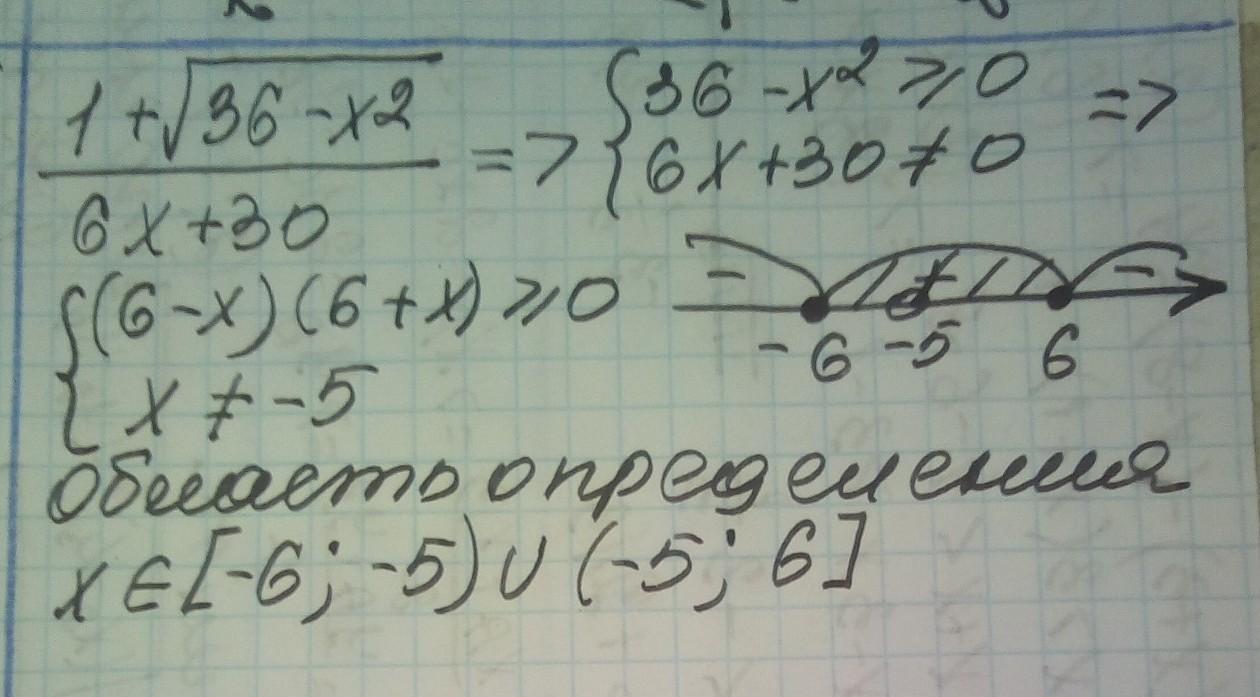 1+√36-x2 => {36-x² ⩾ 0 =>
6x+30 {6x+30 ≠ 0
{(6-x)(6+x) ⩾ 0 - + -
{x ≠ -5 -6 -5 6
Область определения
x∈[-6; -5)∪(-5; 6]